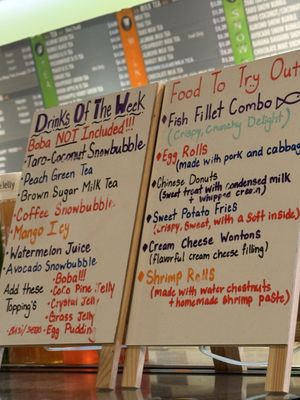 Drinks Of The Week
Boba NOT Included!!!
Taro-Coconut Snowbubble
Peach Green Tea
Brown Sugar Milk Tea
Coffee Snowbubble
Mango Icy
Watermelon Juice
Avocado Snowbubble
Add these
Topping's
Boba!!!
Coco Pine Jelly
Crystal Jelly
Grass Jelly
Egg Pudding
Food To Try Out
Fish Fillet Combo
(Crispy, Crunchy Delight)
Egg Rolls
(made with pork and cabbag
Chinese Donuts
(Sweet treat with condensed milk
+ whipped cream)
Sweet Potato Fries
(Crispy, Sweet, with a soft inside)
Cream Cheese Wontons
(Flavorful cream cheese filling)
Shrimp Rolls
(made with water chestnuts
+ homemade shrimp paste)